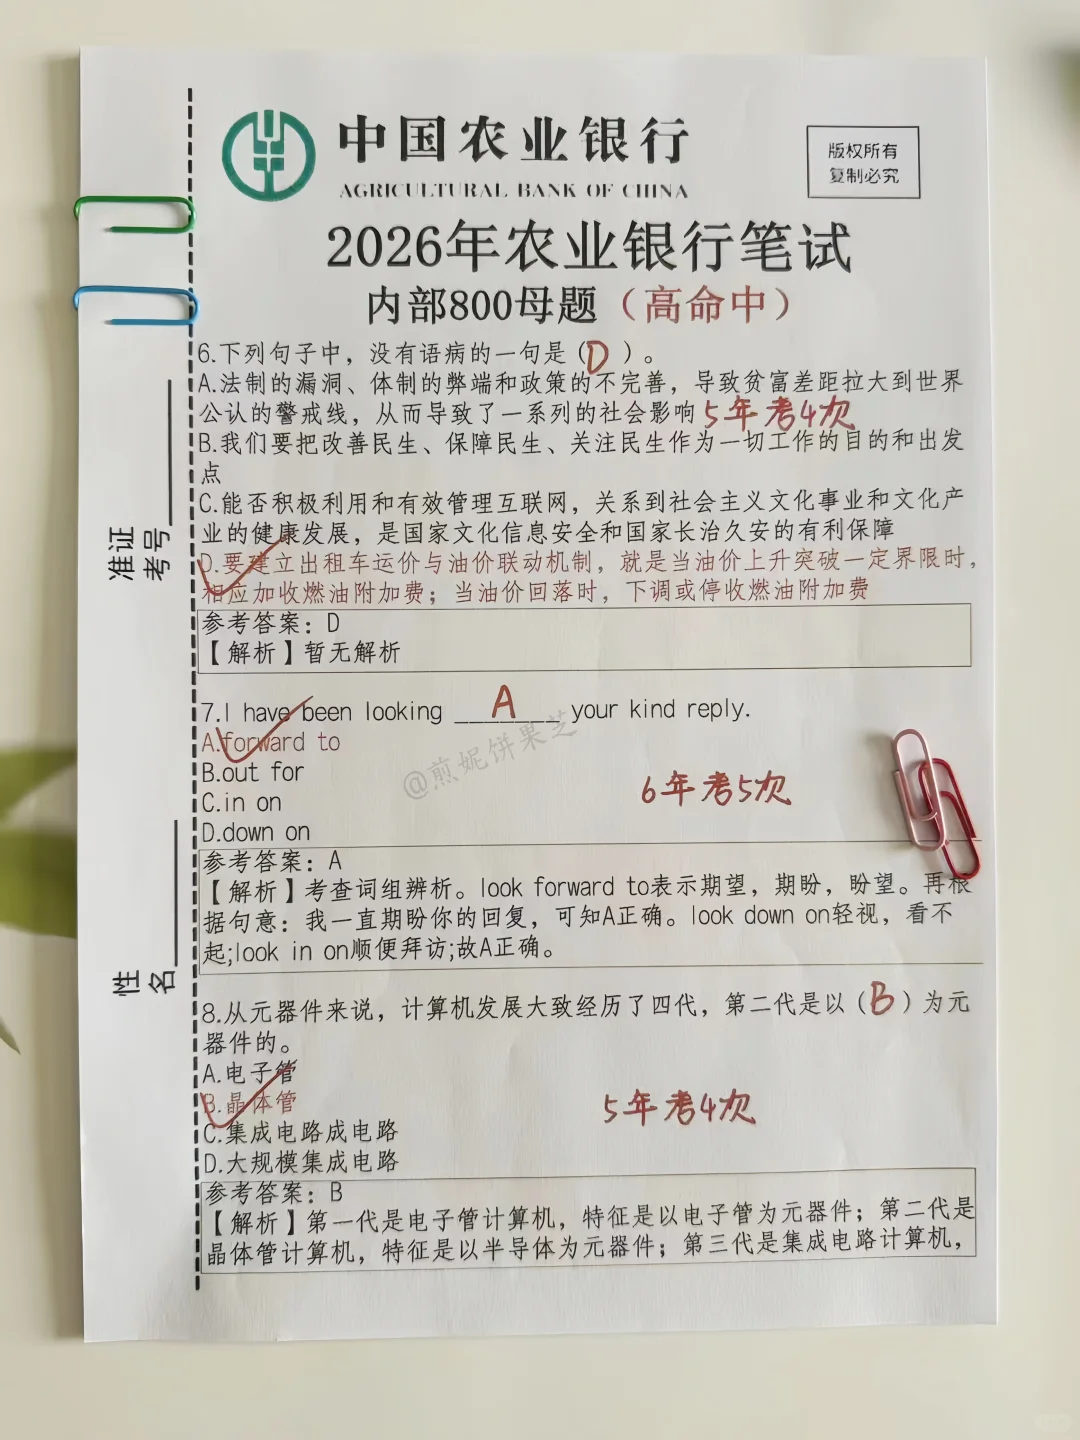 中国农业银行
AGRICULTURAL BANK OF CHINA
版权所有
复制必究
2026年农业银行笔试
内部800母题（高命中）
6.下列句子中，没有语病的一句是（D）。
A.法制的漏洞、体制的弊端和政策的不完善，导致贫富差距拉大到世界
公认的警戒线，从而导致了一系列的社会影响 5年考4次
B.我们要把改善民生、保障民生、关注民生作为一切工作的目的和出发
点
C.能否积极利用和有效管理互联网，关系到社会主义文化事业和文化产
业的健康发展，是国家文化信息安全和国家长治久安的有利保障
D.要建立出租车运价与油价联动机制，就是当油价上升突破一定界限时，
相应加收燃油附加费；当油价回落时，下调或停收燃油附加费
参考答案：D
【解析】暂无解析
7.I have been looking ___A___ your kind reply.
A.forward to
@煎妮饼果芝
B.out for
6年考5次
C.in on
D.down on
参考答案：A
【解析】考查词组辨析。look forward to表示期望，期盼，盼望。再根
据句意：我一直期盼你的回复，可知A正确。look down on轻视，看不
起;look in on顺便拜访;故A正确。
8.从元器件来说，计算机发展大致经历了四代，第二代是以（B）为元
器件的。
A.电子管
B.晶体管
5年考4次
C.集成电路成电路
D.大规模集成电路
参考答案：B
【解析】第一代是电子管计算机，特征是以电子管为元器件；第二代是
晶体管计算机，特征是以半导体为元器件；第三代是集成电路计算机，
准证
考号
姓
名